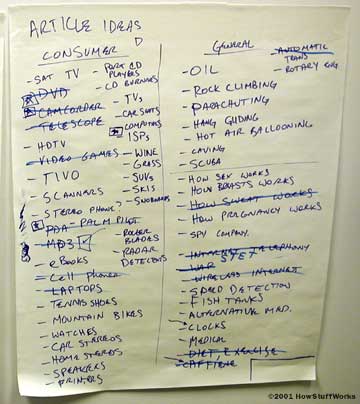 ARTICLE IDEAS
CONSUMER
- SAT TV
- DVD
- CAMCORDER
- TELESCOPE
- HDTV
- VIDEO GAMES
- TIVO
- SCANNERS
- STEREO PHONE?
- PDA - PALM PILOT
- MP3
- eBOOKS
- CELL PHONES
- LAPTOPS
- TENNIS SHOES
- MOUNTAIN BIKES
- WATCHES
- CAR STEREOS
- HOME STEREOS
- SPEAKERS
- PRINTERS
- PORT CD PLAYERS
- CD BURNERS
- TVs
- CAR SEATS
- COMPUTERS
- ISPs
- WINE
- GRASS
- SUVs
- SKIS
- SNOWBOARDS
- ROLLER BLADES
- RADAR DETECTORS
GENERAL
- AUTOMATIC TRANS
- ROTARY ENG
- OIL
- ROCK CLIMBING
- PARACHUTING
- HANG GLIDING
- HOT AIR BALLOONING
- CAVING
- SCUBA
- HOW SEX WORKS
- HOW BREASTS WORKS
- HOW SWEAT WORKS
- HOW PREGNANCY WORKS
- SPY COMPANY
- INTERNET TELEPHONY
- WAP STET
- WIRELESS INTERNET
- SPEED DETECTION
- FISH TANKS
- ALTERNATIVE MED.
- CLOCKS
- MEDICAL
- DIET, EXERCISE
- CAFFIENE
©2001 HowStuffWorks